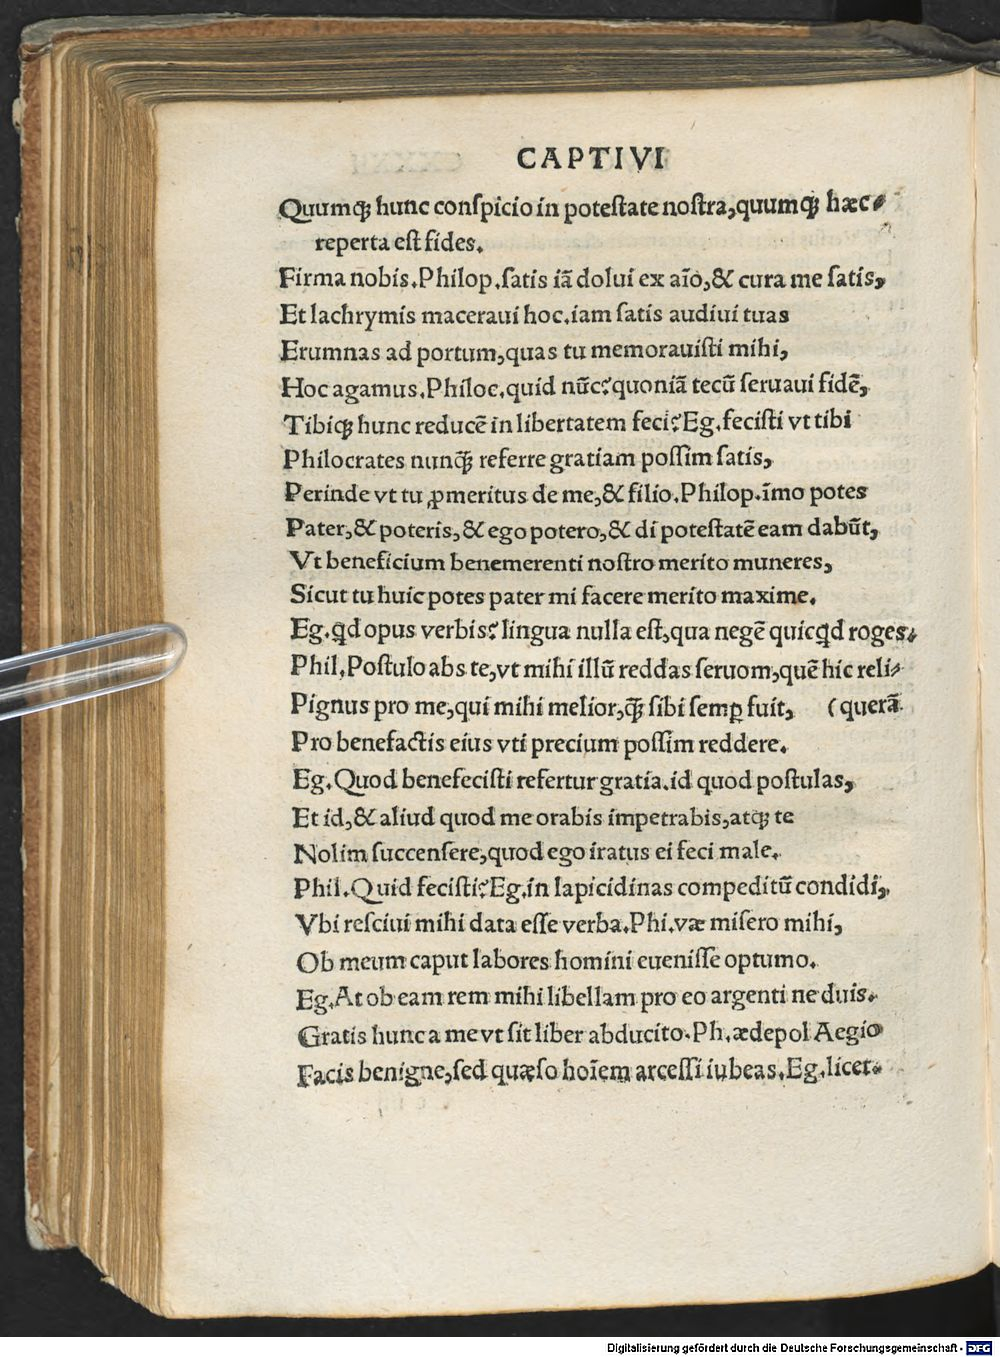 CAPTIVI
Quumqꝫ hunc conſpicio in poteſtate noſtra,quumqꝫ hæc⸗
reperta eſt fides.
Firma nobis.Philop.ſatis iã dolui ex aĩo,& cura me ſatis,
Et lachrymis maceraui hoc.iam ſatis audiui tuas
Erumnas ad portum,quas tu memorauiſti mihi,
Hoc agamus.Philoc.quid nũc?quoniã tecũ ſeruaui fidẽ,
Tibiqꝫ hunc reducẽ in libertatem feci?Eg.feciſti vt tibi
Philocrates nunq̃ referre gratiam poſſim ſatis,
Perinde vt tu ꝓmeritus de me,& filio.Philop.ĩmo potes
Pater,& poteris,& ego potero,& di poteſtatẽ eam dabũt,
Vt beneficium benemerenti noſtro merito muneres,
Sicut tu huic potes pater mi facere merito maxime.
Eg.qd opus verbis?lingua nulla eſt,qua negẽ quicqd roges.
Phil.Poſtulo abs te,vt mihi illũ reddas ſeruom,quẽ hic reli⸗
Pignus pro me,qui mihi melior,q̃ ſibi ſemꝑ fuit, (querã
Pro benefactis eius vti precium poſſim reddere.
Eg.Quod benefeciſti refertur gratia.id quod poſtulas,
Et id,& aliud quod me orabis impetrabis,atqꝫ te
Nolim ſuccenſere,quod ego iratus ei feci male.
Phil.Quid feciſti?Eg.in lapicidinas compeditũ condidi,
Vbi reſciui mihi data eſſe verba.Phi.væ miſero mihi,
Ob meum caput labores homini eueniſſe optumo.
Eg.At ob eam rem mihi libellam pro eo argenti ne duis.
Gratis hunc a me vt ſit liber abducito.Ph.ædepol Aegio
Facis benigne,ſed quæſo hoĩem arceſſi iubeas.Eg.licet.
Digitalisierung gefördert durch die Deutsche Forschungsgemeinschaft - DFG